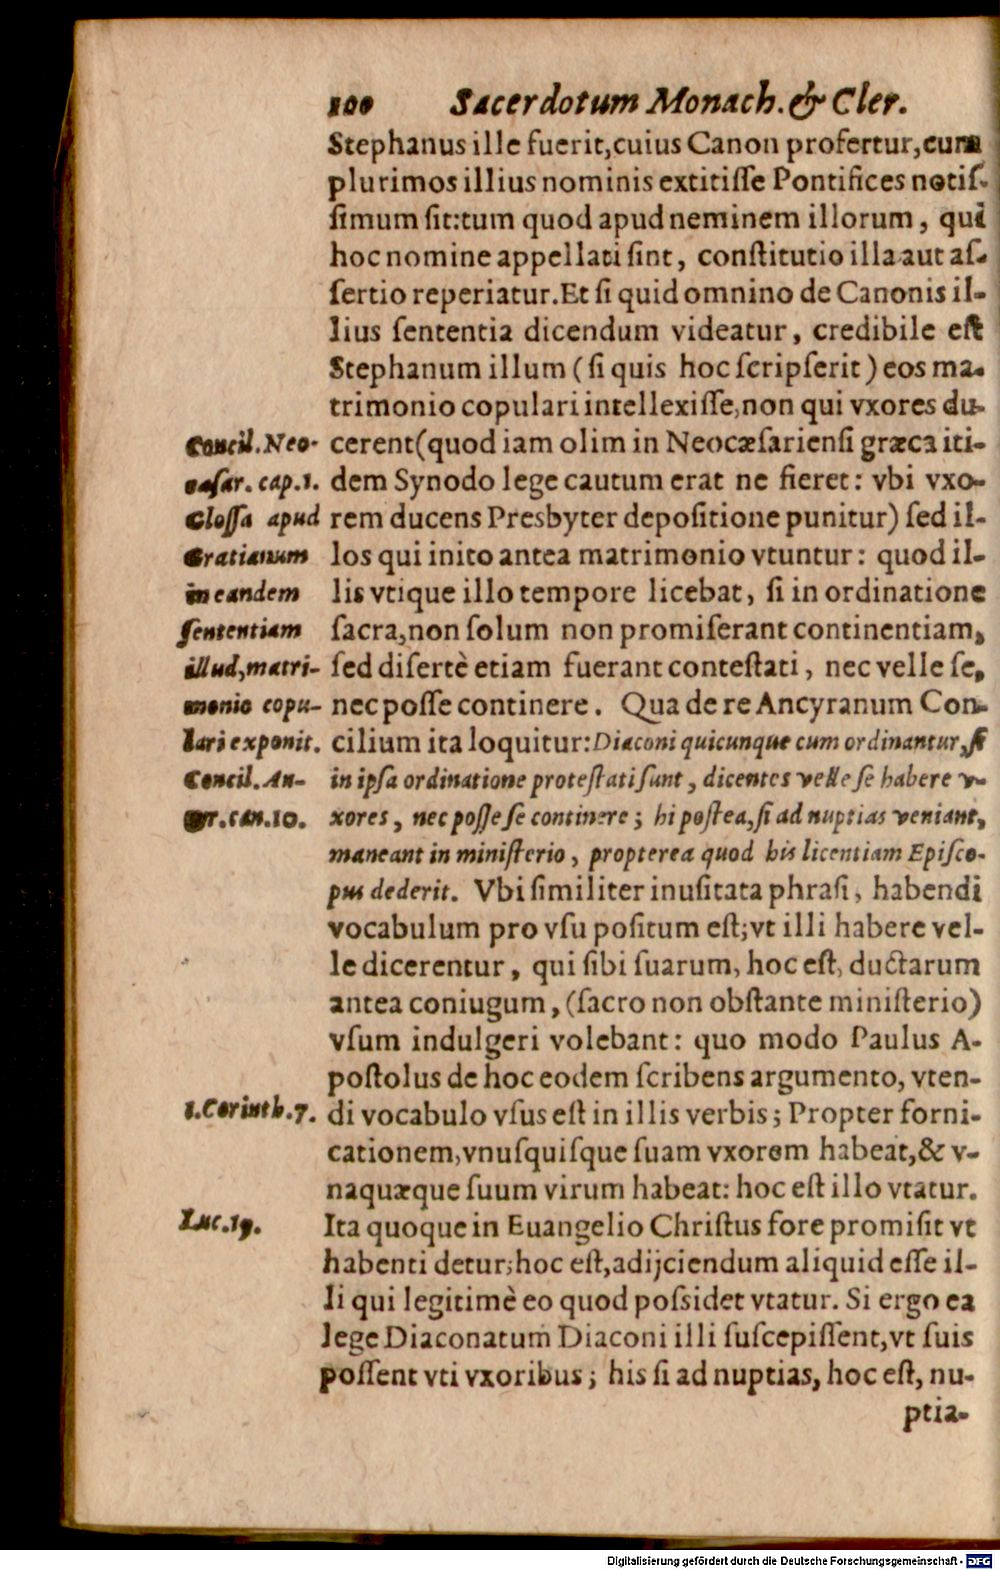 100 Sacerdotum Monach. & Cler.
Stephanus ille fuerit, cuius Canon profertur, cum
plurimos illius nominis extitiſſe Pontifices notiſ-
ſimum ſit: tum quod apud neminem illorum, qui
hoc nomine appellati ſint, conſtitutio illa aut aſ-
ſertio reperiatur. Et ſi quid omnino de Canonis il-
lius ſententia dicendum videatur, credibile eſt
Stephanum illum (ſi quis hoc ſcripſerit) eos ma-
trimonio copulari intellexiſſe, non qui vxores du-
cerent (quod iam olim in Neocæſarienſi græca iti-
dem Synodo lege cautum erat ne fieret: vbi vxo-
rem ducens Presbyter depoſitione punitur) ſed il-
los qui inito antea matrimonio vtuntur: quod il-
lis vtique illo tempore licebat, ſi in ordinatione
ſacra, non ſolum non promiſerant continentiam,
ſed diſertè etiam fuerant conteſtati, nec velle ſe,
nec poſſe continere. Qua de re Ancyranum Con-
cilium ita loquitur: Diaconi quicunque cum ordinantur, ſi
in ipſa ordinatione proteſtati ſunt, dicentes velle ſe habere v-
xores, nec poſſe ſe continere; hi poſtea, ſi ad nuptias veniant,
maneant in miniſterio, propterea quod his licentiam Epiſco-
pus dederit. Vbi ſimiliter inuſitata phraſi, habendi
vocabulum pro vſu poſitum eſt; vt illi habere vel-
le dicerentur, qui ſibi ſuarum, hoc eſt, ductarum
antea coniugum, (ſacro non obſtante miniſterio)
vſum indulgeri volebant: quo modo Paulus A-
poſtolus de hoc eodem ſcribens argumento, vten-
di vocabulo vſus eſt in illis verbis; Propter forni-
cationem, vnuſquiſque ſuam vxorem habeat, & v-
naquæque ſuum virum habeat: hoc eſt illo vtatur.
Ita quoque in Euangelio Chriſtus fore promiſit vt
habenti detur; hoc eſt, adijciendum aliquid eſſe il-
li qui legitimè eo quod poſsidet vtatur. Si ergo ea
lege Diaconatum Diaconi illi ſuſcepiſſent, vt ſuis
poſſent vti vxoribus; his ſi ad nuptias, hoc eſt, nu-
ptia-
Concil. Neo-
cæſar. cap. 1.
Gloſſa apud
Gratianum
in eandem
ſententiam
illud, matri-
monio copu-
lari exponit.
Concil. An-
cyr. can. 10.
1. Corinth. 7.
Luc. 19.
Digitalisierung gefördert durch die Deutsche Forschungsgemeinschaft - DFG